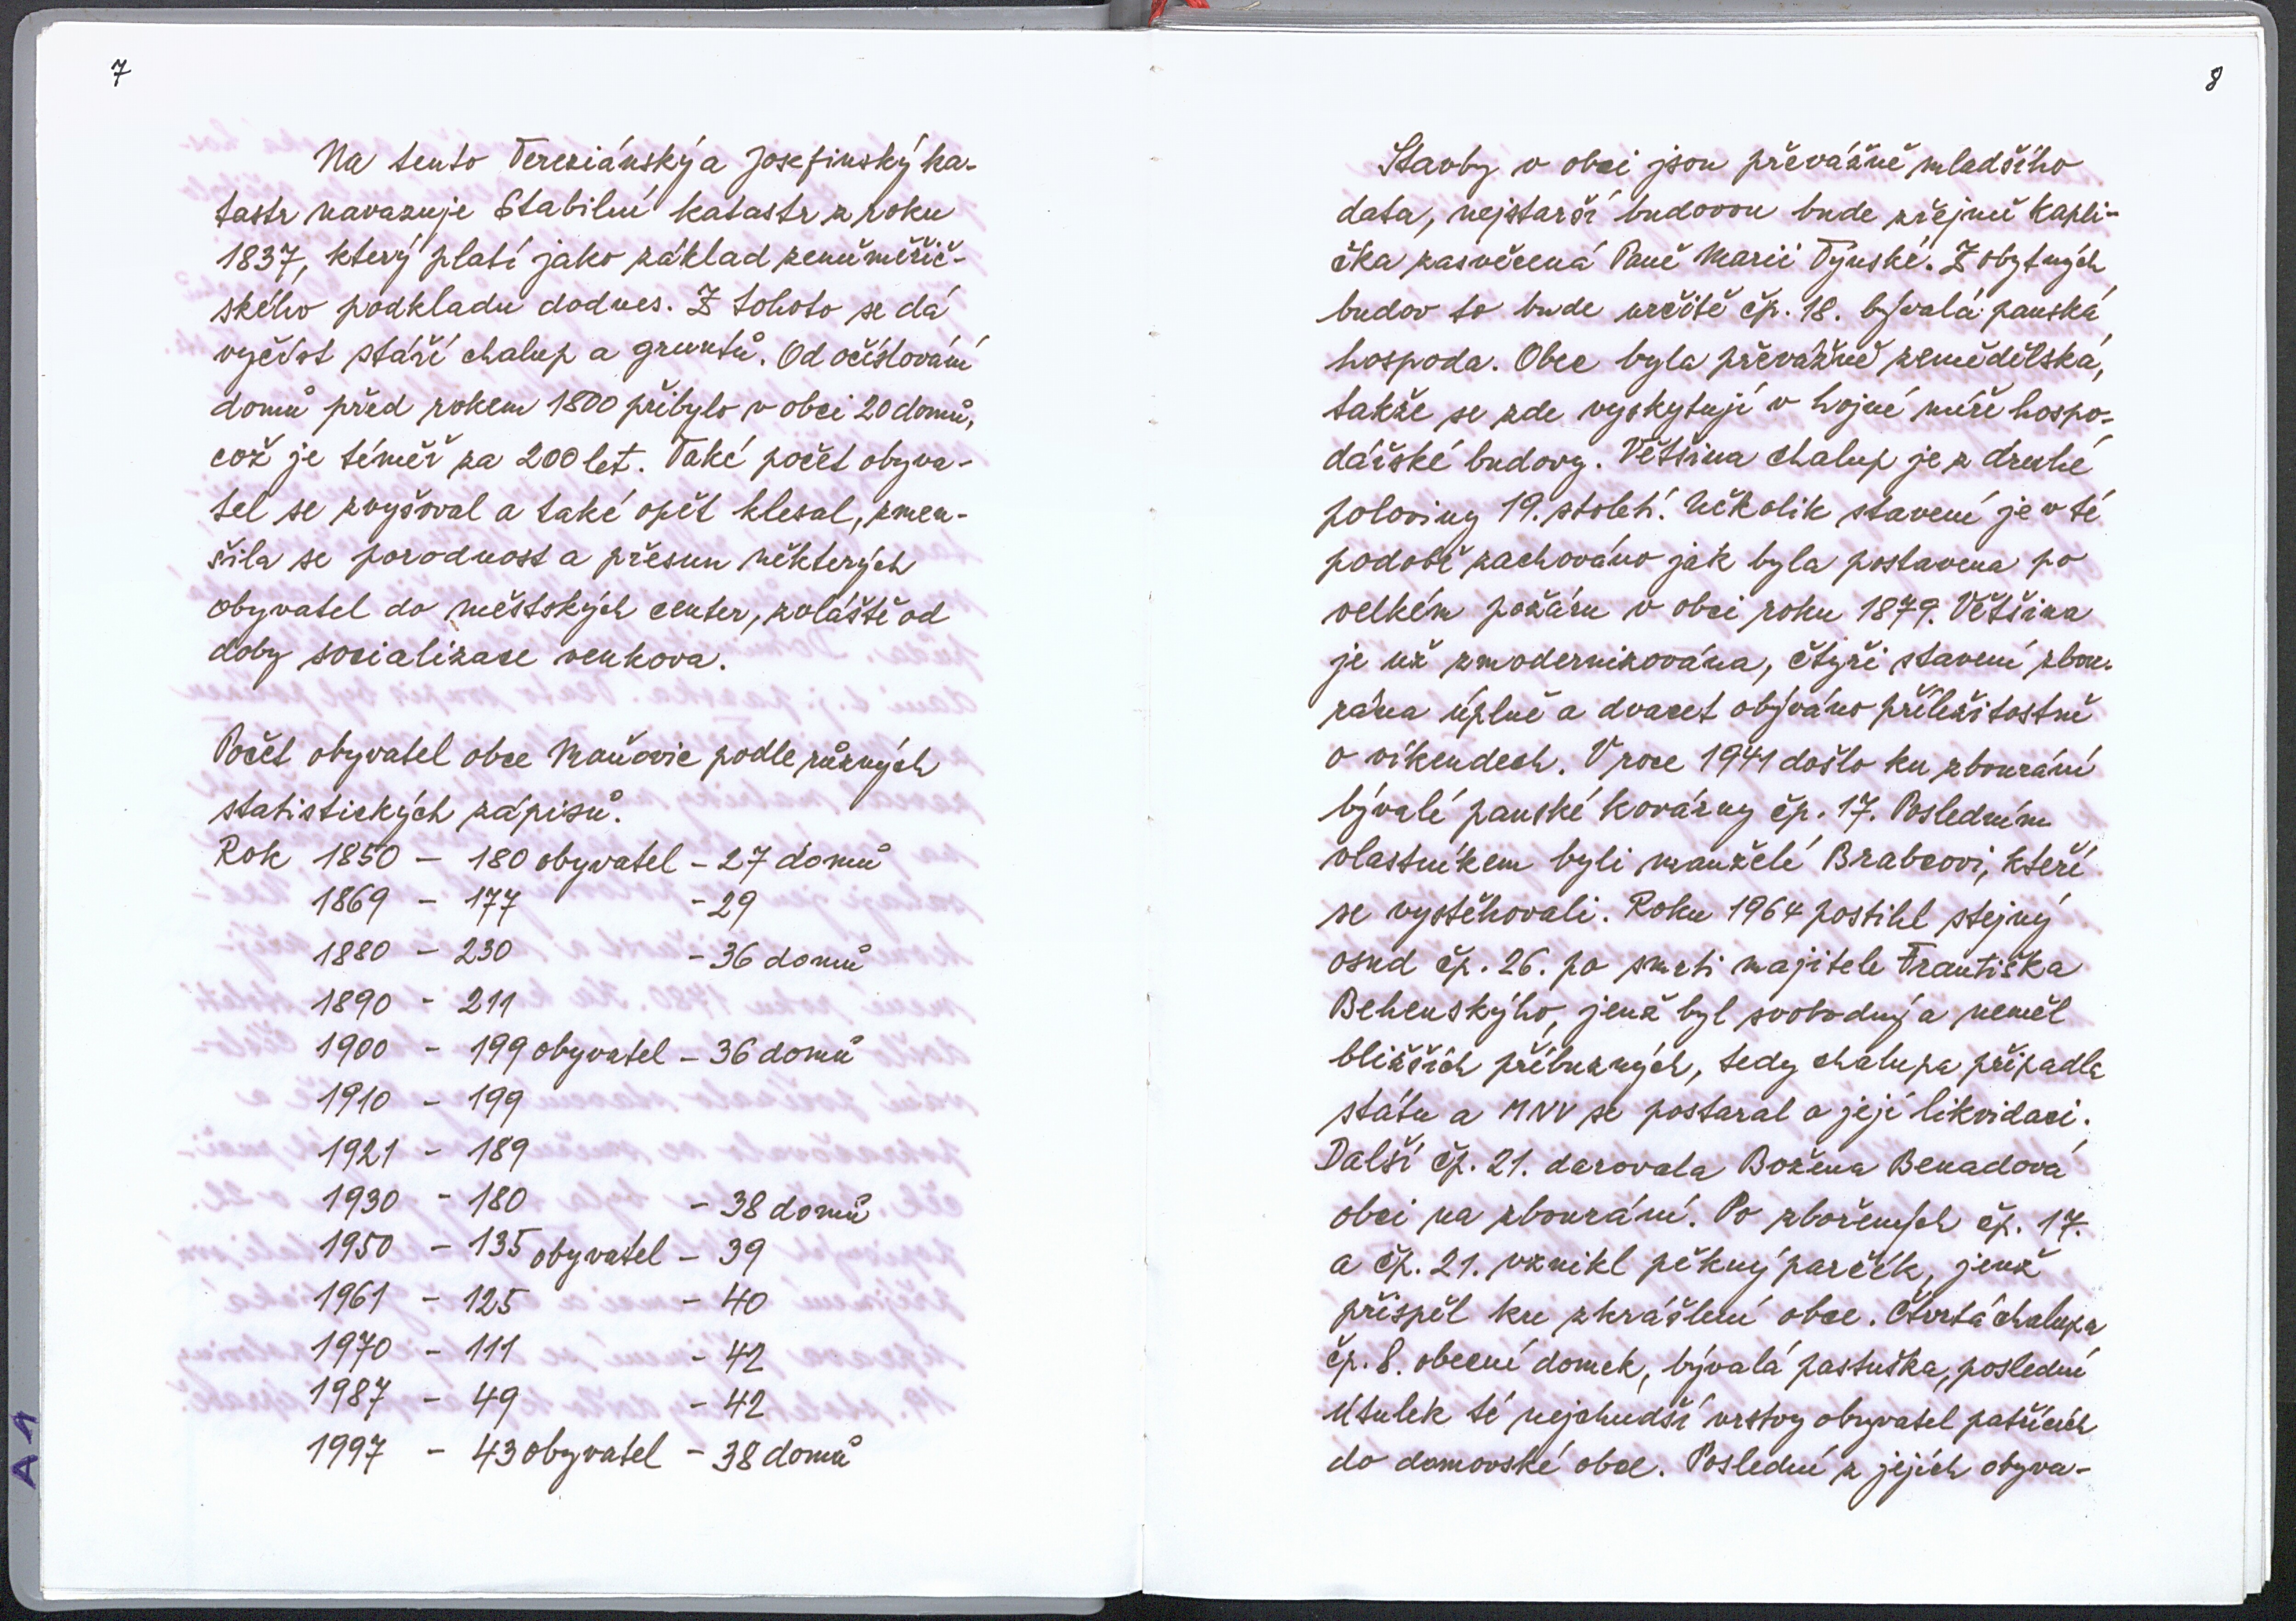 7
Na tento Tereziánský a Josefinský ka-
tastr navazuje Stabilní katastr z roku
1837, který platí jako základ zeměměřič-
ského podkladu dodnes. Z tohoto se dá
vyčíst stáří chalup a gruntů. Od očíslování
domů před rokem 1800 přibylo v obci 20 domů,
což je téměř za 200 let. Také počet obyva-
tel se zvyšoval a také opět klesal, zmen-
šila se porodnost a přesun některých
obyvatel do městských center, zvláště od
doby socializace venkova.
Počet obyvatel obce Maňovic podle různých
statistických zápisů.
Rok 1850 - 180 obyvatel - 27 domů
1869 - 177 - 29
1880 - 230 - 36 domů
1890 - 211
1900 - 199 obyvatel - 36 domů
1910 - 199
1921 - 189
1930 - 180 - 38 domů
1950 - 135 obyvatel - 39
1961 - 125 - 40
1970 - 111 - 42
1987 - 49 - 42
1997 - 43 obyvatel - 38 domů
A1
8
Stavby v obci jsou převážně mladšího
data, nejstarší budovou bude zřejmě kapli-
čka zasvěcená Paně Marii Týnské. Z obytných
budov to bude určitě čp. 18. bývalá panská
hospoda. Obec byla převážně zemědělská,
takže se zde vyskytují v hojné míře hospo-
dářské budovy. Většina chalup je z druhé
poloviny 19. století. Několik stavení je v té
podobě zachováno jak byla postavena po
velkém požáru v obci roku 1879. Většina
je už zmodernizována, čtyři stavení zbou-
rána úplně a dvacet obýváno příležitostně
o víkendech. V roce 1941 došlo ku zbourání
bývalé panské kovárny čp. 17. Posledním
vlastníkem byli manželé Brabcovi, kteří
se vystěhovali. Roku 1964 postihl stejný
osud čp. 26. po smrti majitele Františka
Behenskýho, jenž byl svobodný a neměl
bližších příbuzných, tedy chalupa připadla
státu a MNV se postaral o její likvidaci.
Další čp. 21. darovala Božena Benadová
obci na zbourání. Po zbořených čp. 17.
a čp. 21. vznikl pěkný parčík, jenž
přispěl ku zkrášlení obce. Čtvrtá chalupa
čp. 8. obecní domek, bývalá pastuška, poslední
útulek té nejchudší vrstvy obyvatel patřících
do domovské obce. Poslední z jejích obyva-